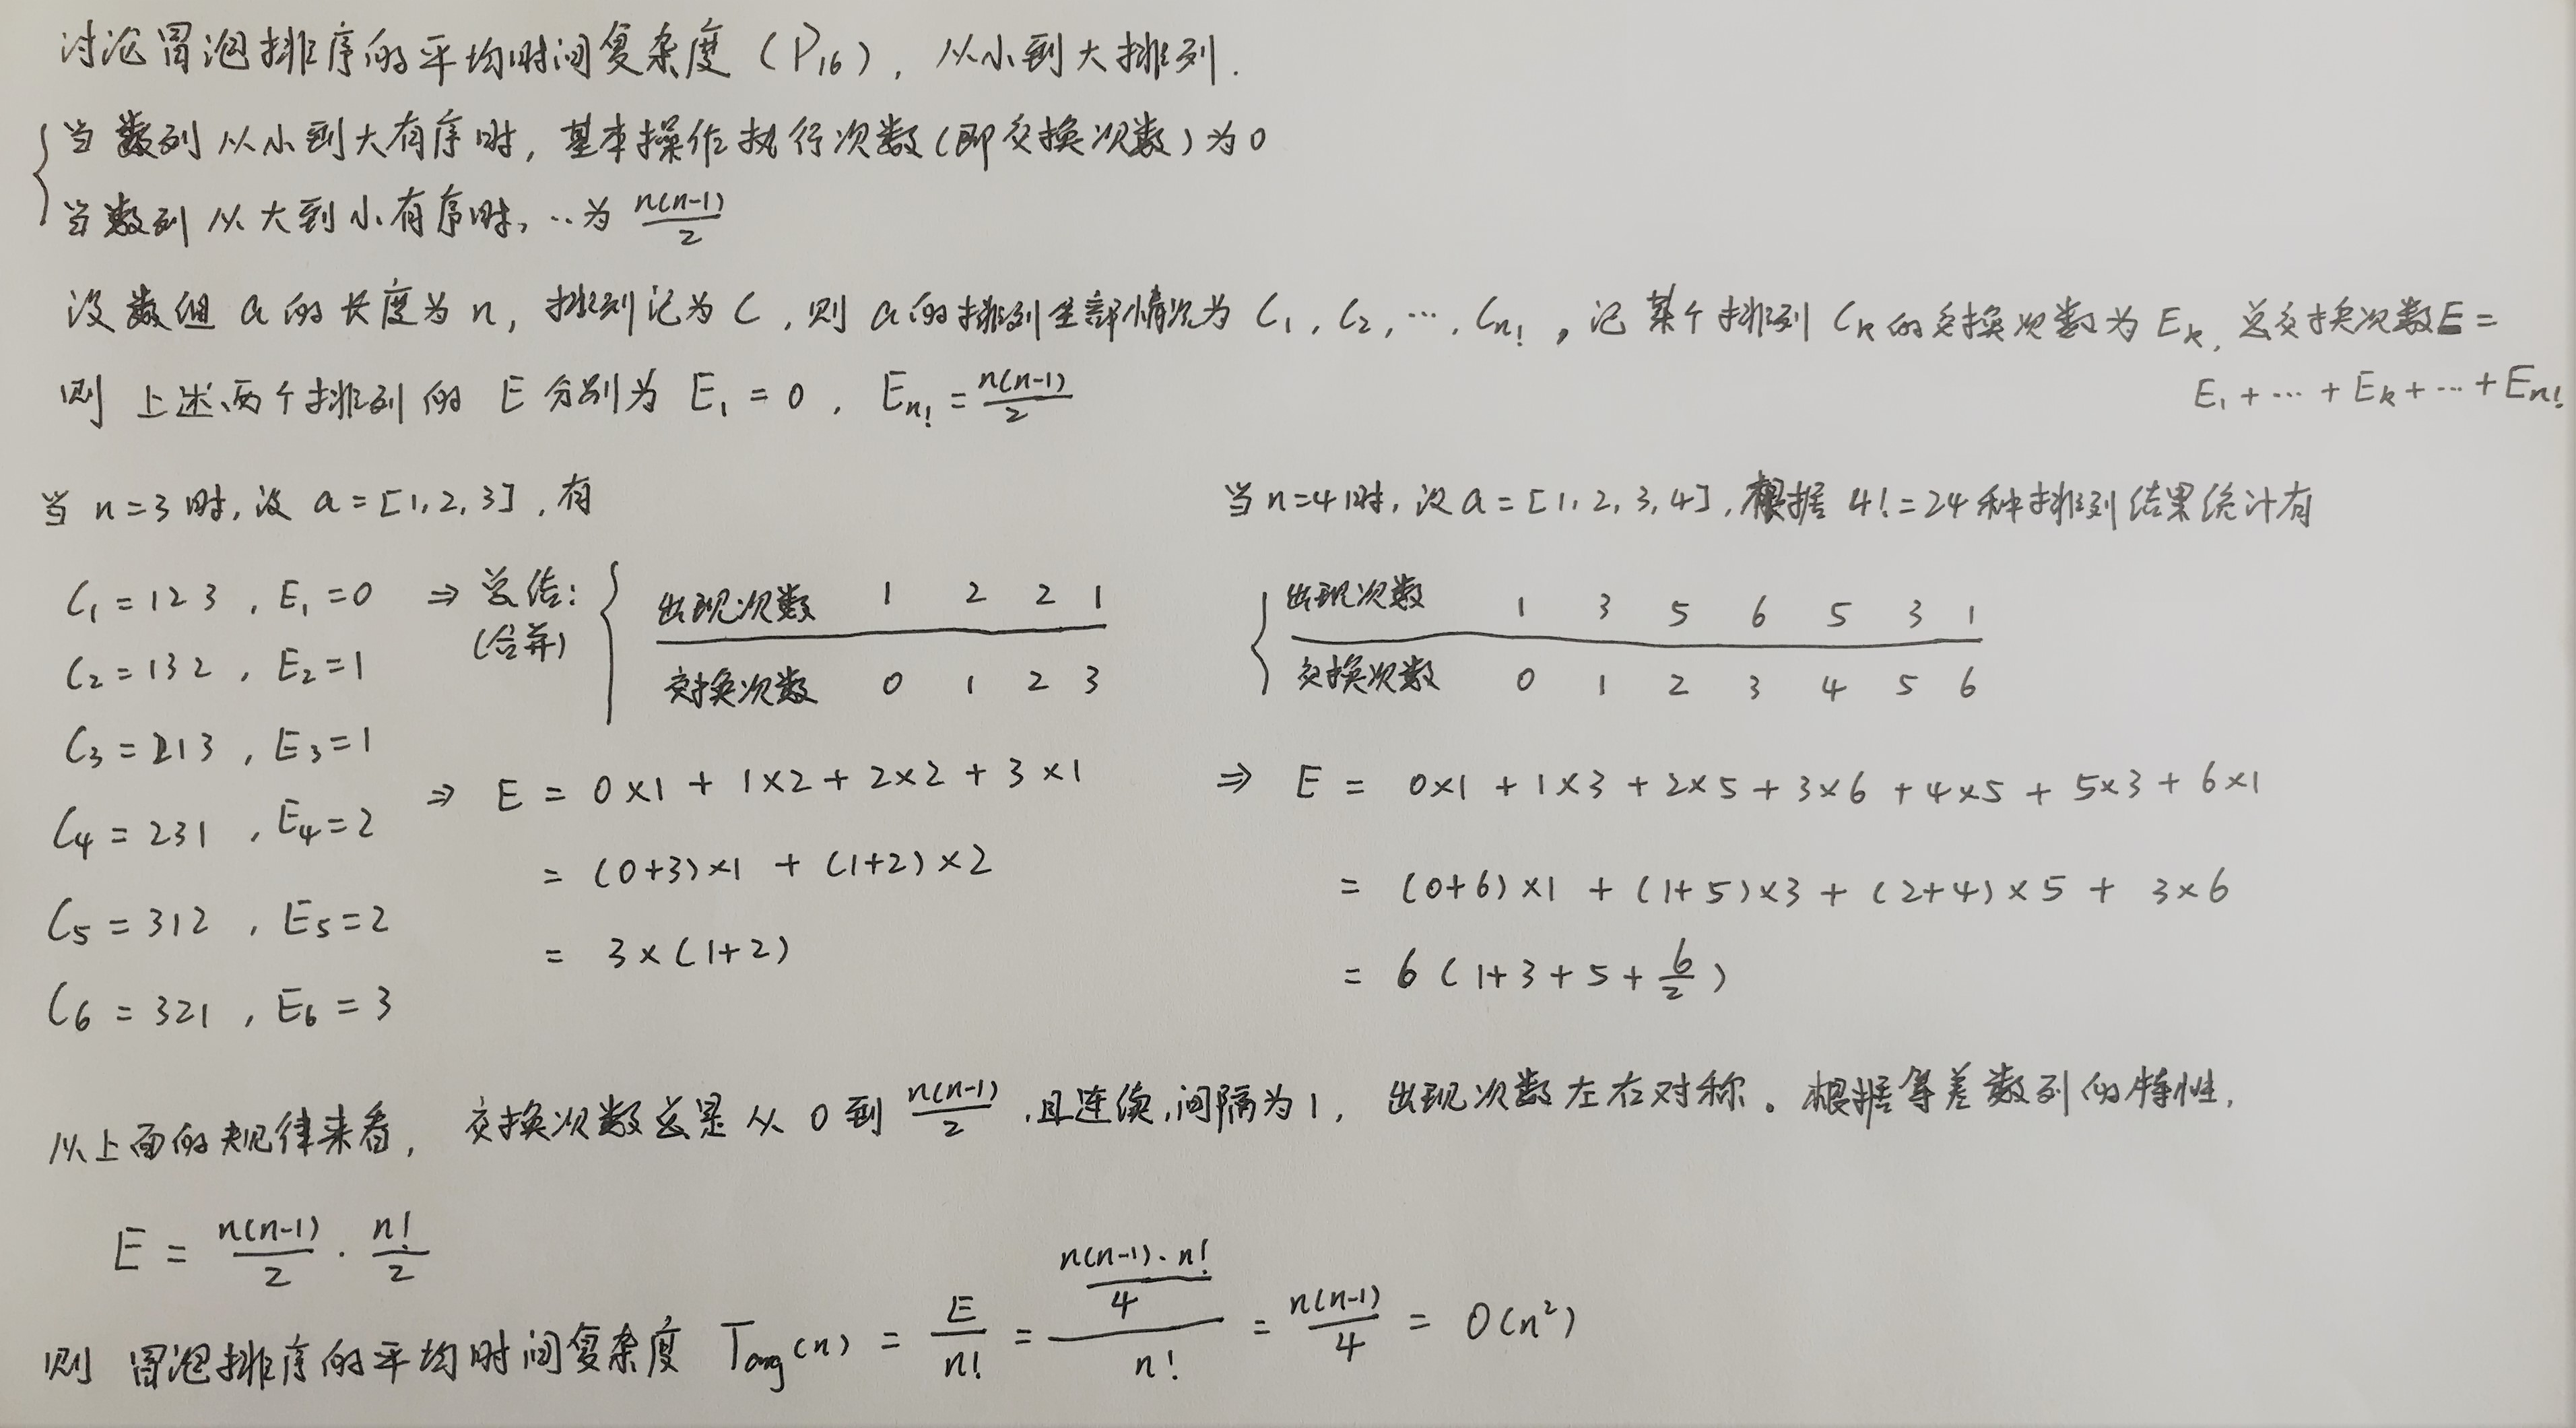 讨论冒泡排序的平均时间复杂度（P₁₆），从小到大排列.
当数列从小到大有序时，基本操作执行次数（即交换次数）为0
当数列从大到小有序时，…为 n(n-1)/2
设数组 a 的长度为 n，排列记为 C，则 a 的排列全部情况为 C₁, C₂, …, Cₙ!，记某个排列 Cₖ 的交换次数为 Eₖ，总交换次数E =
E₁ + … + Eₖ + … + Eₙ!
则 上述两个排列的 E 分别为 E₁ = 0，Eₙ! = n(n-1)/2
当 n=3 时，设 a = [1, 2, 3]，有
C₁ = 1 2 3 , E₁ = 0
C₂ = 1 3 2 , E₂ = 1
C₃ = 2 1 3 , E₃ = 1
C₄ = 2 3 1 , E₄ = 2
C₅ = 3 1 2 , E₅ = 2
C₆ = 3 2 1 , E₆ = 3
⇒ 总结：
（合并）
出现次数 1 2 2 1
交换次数 0 1 2 3
⇒ E = 0×1 + 1×2 + 2×2 + 3×1
= (0+3)×1 + (1+2)×2
= 3×(1+2)
当 n=4 时，设 a = [1, 2, 3, 4]，根据 4! = 24 种排列结果统计有
出现次数 1 3 5 6 5 3 1
交换次数 0 1 2 3 4 5 6
⇒ E = 0×1 + 1×3 + 2×5 + 3×6 + 4×5 + 5×3 + 6×1
= (0+6)×1 + (1+5)×3 + (2+4)×5 + 3×6
= 6 (1+3+5+6/2)
从上面的规律来看，交换次数总是从 0 到 n(n-1)/2，且连续，间隔为1，出现次数左右对称。根据等差数列的特性，
E = n(n-1)/2 · n!/2
则 冒泡排序的平均时间复杂度 Tavg(n) = E/n! = (n(n-1)·n!/4)/n! = n(n-1)/4 = O(n²)